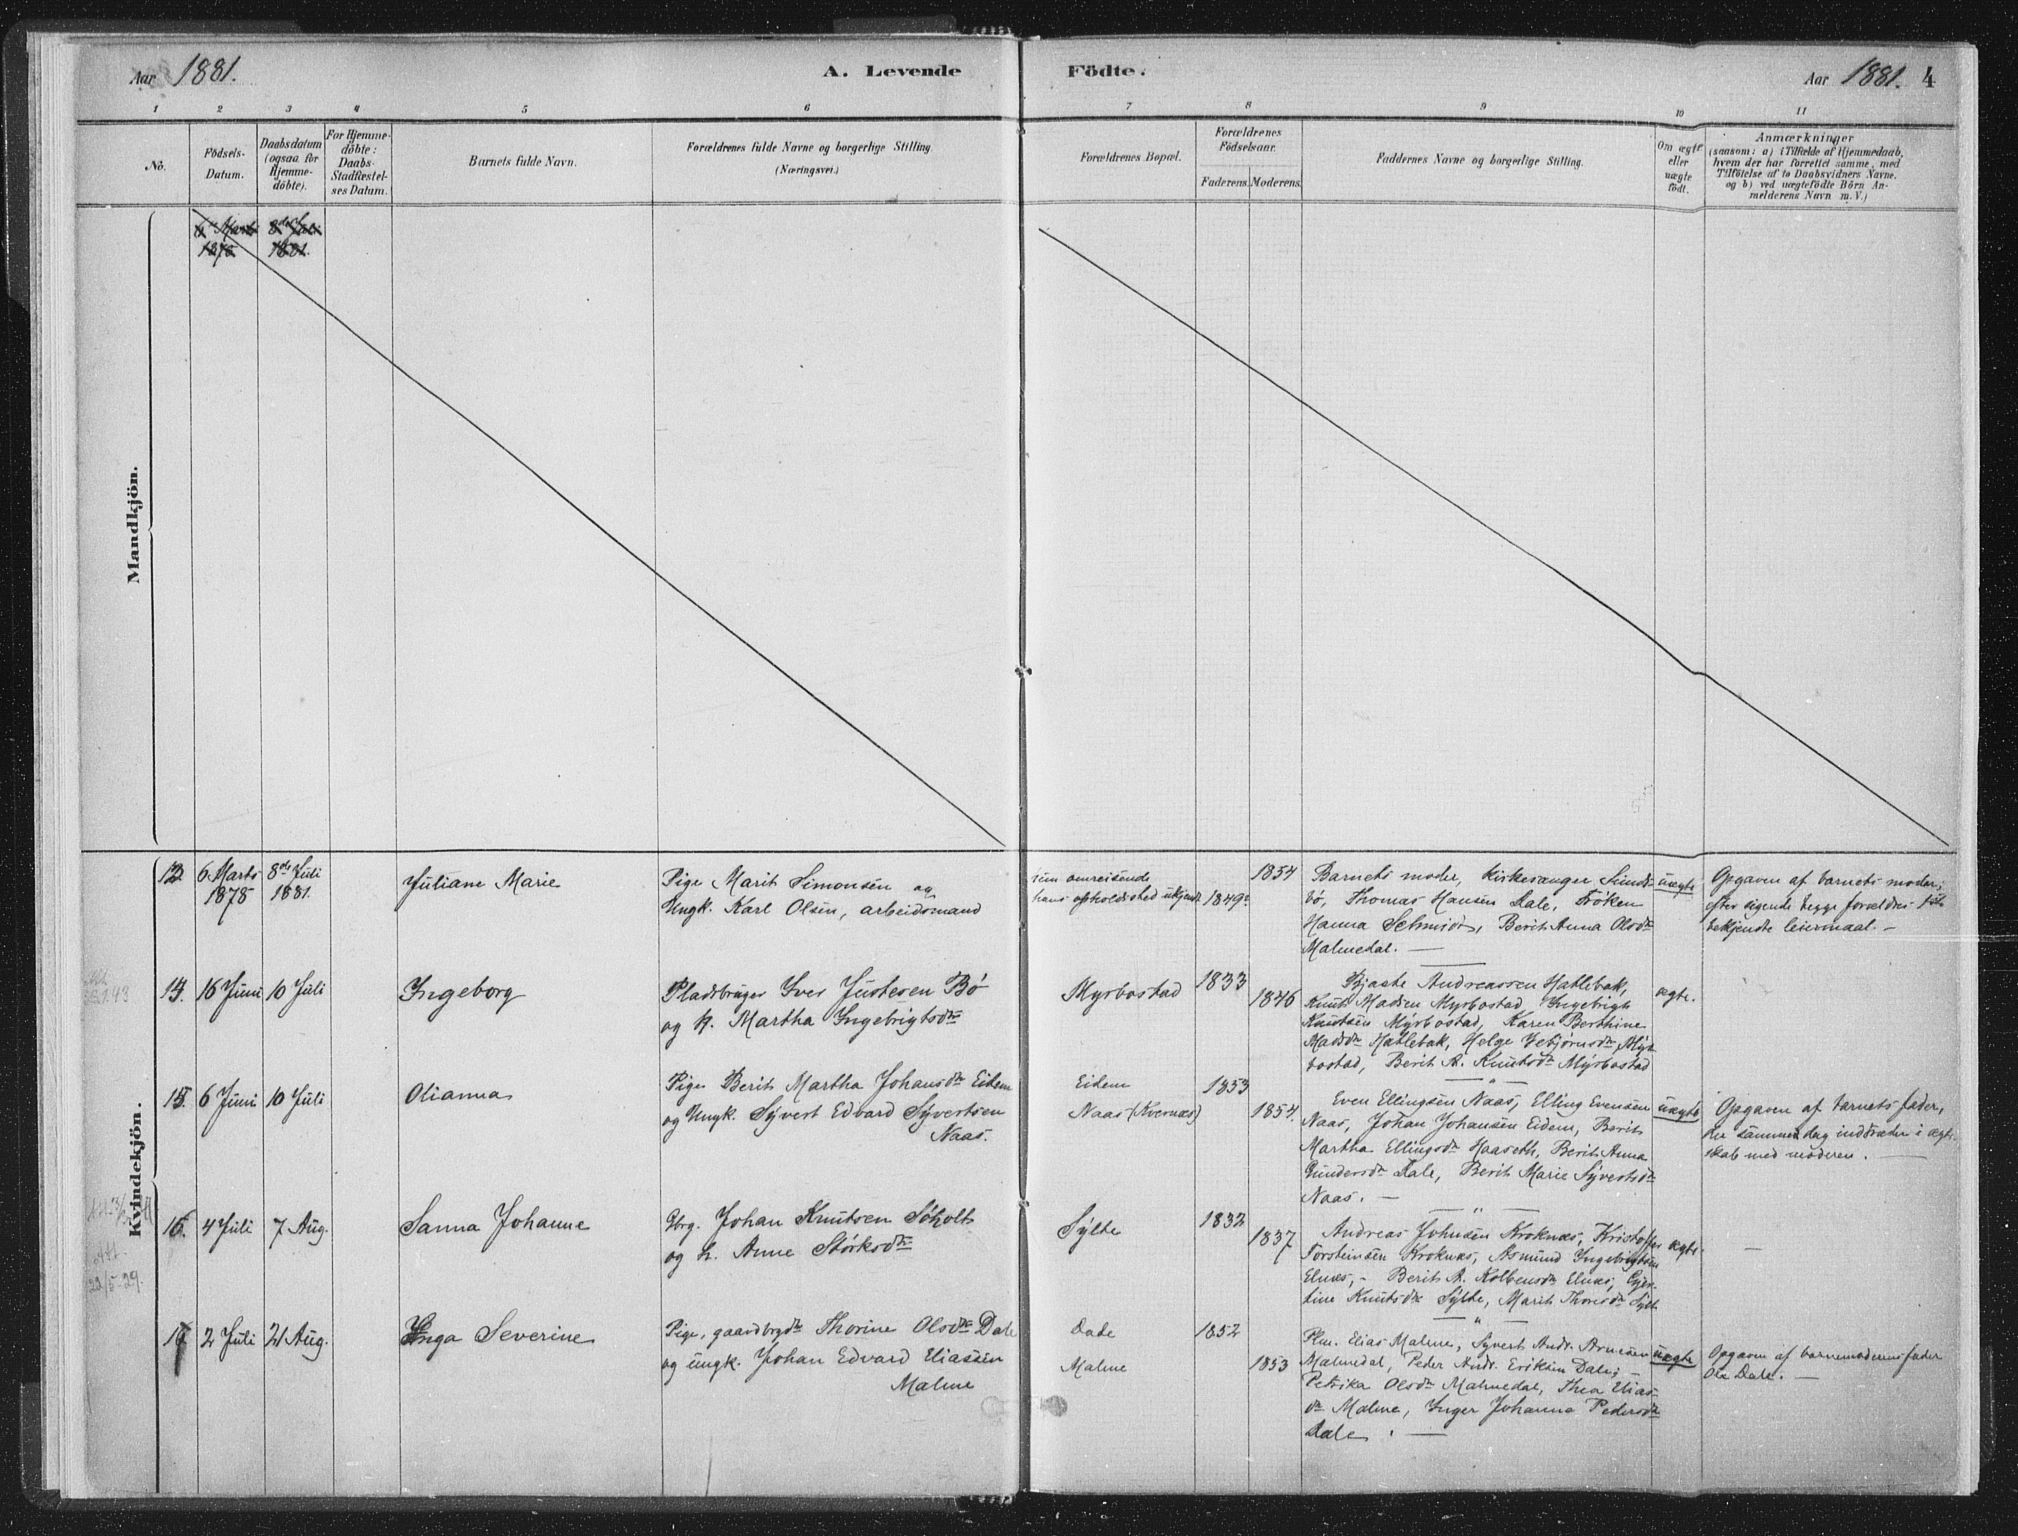 Aar 1881.
A. Levende Födte.
Aar 1881. 4
1 2 3 4 5 6 7 8 9 10 11
No.
Födsels-
Datum.
Daabsdatum
(ogsaa for
Hjemme-
döbte).
For Hjemme-
döbte:
Daabs-
Stadfæstel-
ses Datum.
Barnets fulde Navn.
Forældrenes fulde Navne og borgerlige Stilling.
(Næringsvei.)
Forældrenes Bopæl.
Forældrenes
Födselsaar.
Faderens. Moderens.
Faddernes Navne og borgerlige Stilling.
Om ægte
eller
uægte
födt.
Anmærkninger
(saasom: a) i Tilfælde af Hjemmedaab,
hvem der har forrettet samme, med
Tilföielse af to Daabsvidners Navne.
og b) ved uægtefödte Börn An-
melderens Navn m. V.)
Mandkjön.
6 Marts 8de Juli
1878 1881.
Kvindekjön.
6 Marts
1878
8de Juli
1881.
Juliane Marie
Pige Marit Simonsen og
Ungk. Karl Olsen, arbeidsmand
omreisende
hans opholdssted ukjendt
1849
1854
Barnets moder, kirkesanger Sunds-
bö, Thomas Hansen Dale, Fröken
Hanna Schmidt, Berit Anna Olsdtr
Malmedal. —
uægte
Opgaven af barnets moder;
efter sigende begge forældres
bekjendte leiermaal. —
14. 16 Juni 10 Juli
Ingeborg
Pladsbruger Iver Justesen Bö
og h. Martha Ingebrigtsdtr
Myrbostad
1833
1846
Andreassen Hatlebak,
Knut Madsen Myrbostad, Ingebrigt
Knutsen Myrbostad, Karen Berthine
Madsdtr Hatlebak, Helge Myr-
bostad, Berit A. Knutsdtr Myrbostad
ægte.
15. 6 Juni 10 Juli
Olianna
Pige Berit Martha Johansdtr Eidem
og Ungk. Syvert Edvard Syvertsen
Naas.
Eidem
Naas (Kvernæs)
1853
1854.
Even Ellingsen Naas, Elling Evensen
Naas, Johan Johansen Eidem, Berit
Martha Ellingsdtr Haaseth, Berit Anna
Gundersdtr Dale, Berit Marie Syvertsdtr
Naas. —
uægte
Opgaven af barnets fader,
der samme dag indtræder i ægte-
skab med moderen. —
16. 4 Juli 7 Aug.
Sanna Johanne
Gbrg. Johan Knutsen Söholt
og h. Anne Störksdtr
Sylte
1832
1837
Andreas Johnsen Kroknæs, Kristoffer
Torsteinsen Kroknæs, Asmund Ingebrigtsen
Elnæs, – Berit A. Kolbensdtr Elnæs, Gjer-
tine Knutsdtr Sylte, Marit Thoresdtr Sylte
ægte.
—
2 Juli 21 Aug.
Inga Severine
Pige, gaardbrgdtr Thorine Olsdtr Dale
og ungk. Johan Edvard Eliassen
Malme
Dale
Malme
1852
1853
Plm. Elias Malme, Syvert Andr. Arnesen
Malmedal, Peder Andr. Eriksen Dale; –
Petrika Olsdtr Malmedal, Thea Elias-
dtr Malme, Inger Johanna Pedersdtr
Dale. —
uægte
Opgaven af barnemoderens fader
Ole Dale. —
22/5-29.